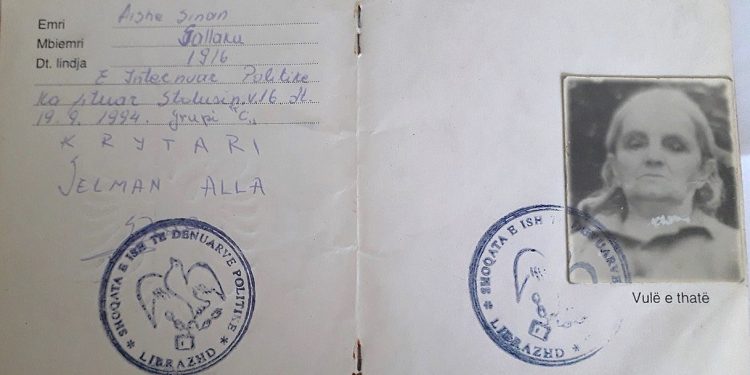 Emri Aishe Sinan
Mbiemri Ballanu
Dt. lindja 1916
E Internuar Politike
Ka fituar Statusin v.16 dt.
19.9.1994. Grupi "C"
KRYTARI
JELMAN ALLA
* SHOQATA E ISH TE DENUARVE POLITIKE *
LIBRAZHD
* SHOQATA E ISH TE DENUARVE
LIBRAZHD
Vulë e thatë